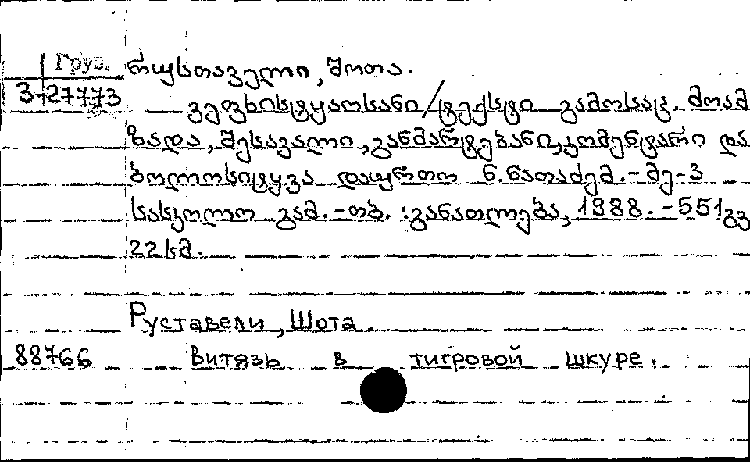 Груз. რუსთაველი, შოთა.
3-27773 ვეფხისტყაოსანი/ტექსტი გამოსაც. მოამ
ზადა, შესავალი, განმარტებანი, კომენტარი და
ბოლოსიტყვა დაურთო ნ. ნათაძემ. - მე-3
სასკოლო გამ. - თბ. : განათლება, 1988. - 551 გვ
22 სმ.
Руставели, Шота.
88766 Витязь в тигровой шкуре.